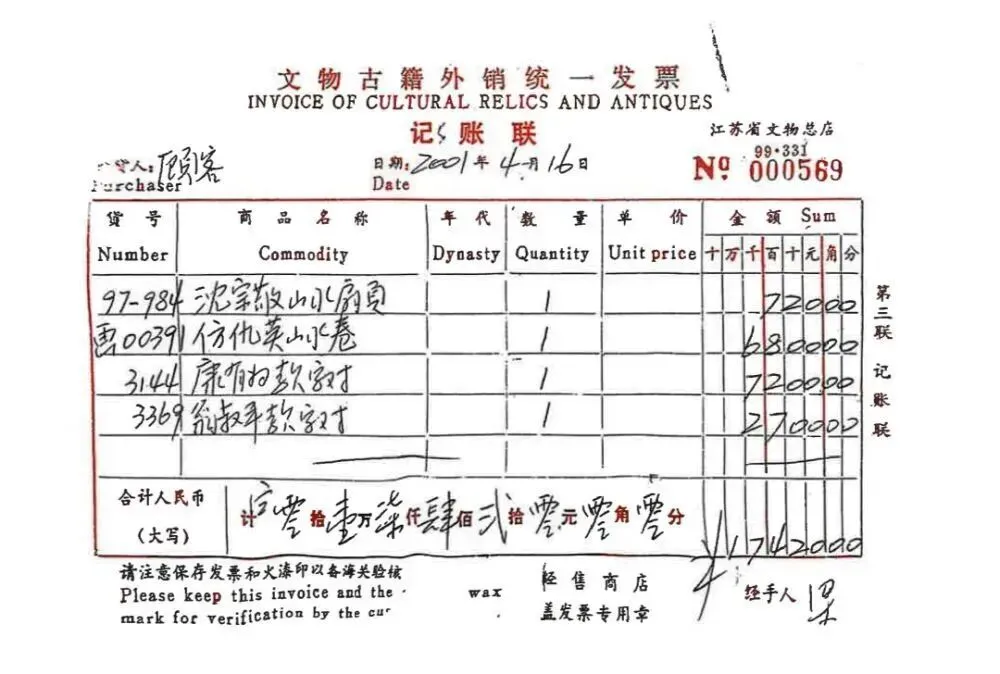 文物古籍外销统一发票
INVOICE OF CULTURAL RELICS AND ANTIQUES
记账联
江苏省文物总店
货人: 顾客
Purchaser
日期: 2001年4月16日
Date
99·331
Nº 000569
货号 商品名称 年代 数量 单价 金额 Sum
Number Commodity Dynasty Quantity Unit price 十万千百十元角分
97-984 沈宗敬山水扇页 1 72000
画00391 仿仇英山水卷 1 680000
3144 康有为款字对 1 720000
3369 翁叔平款字对 1 270000
合计人民币
(大写)
计 零拾壹万柒仟肆佰贰拾零元零角零分
¥1742000
请注意保存发票和火漆印以备海关验核
Please keep this invoice and the wax
mark for verification by the cu
经售商店
盖发票专用章
经手人 梁
第三联 记账联